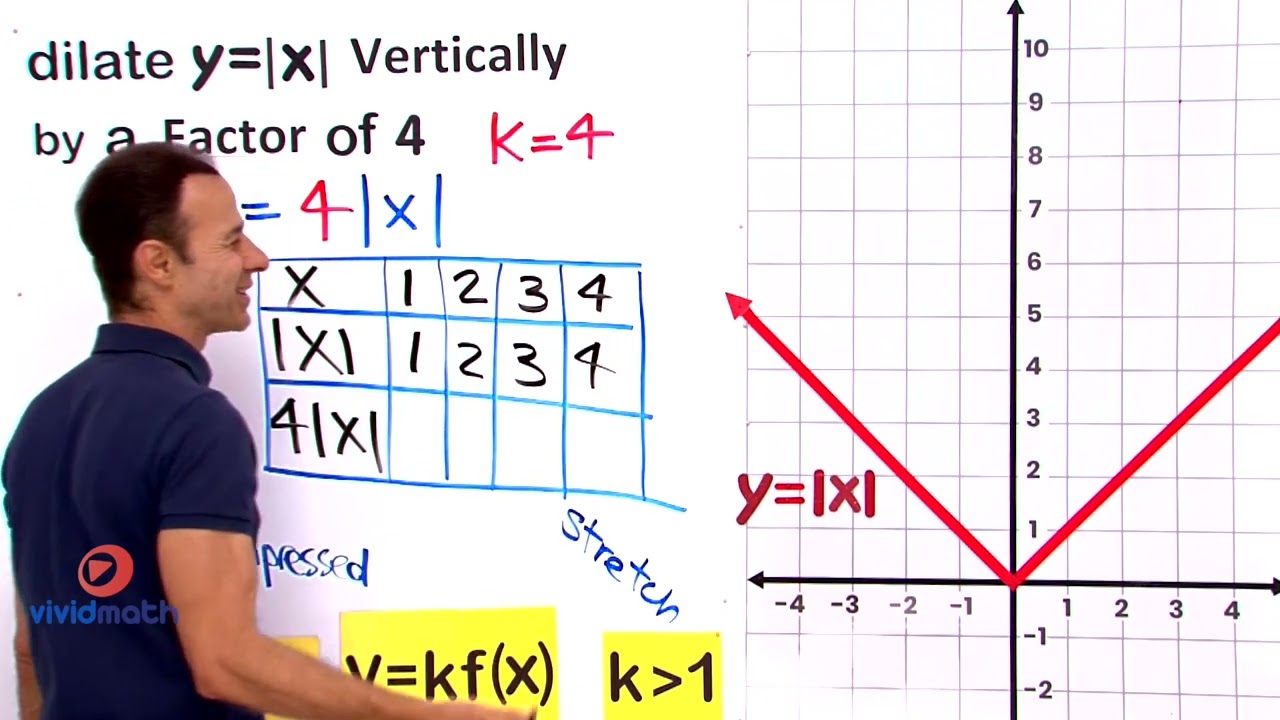 dilate y=|x| Vertically
by a Factor of 4 K=4
= 4|x|
X 1 2 3 4
|X| 1 2 3 4
4|X|
stretch
vividmath
y=kf(x) k>1
y=|x|
10
9
8
7
6
5
4
3
2
1
-4 -3 -2 -1 1 2 3 4
-1
-2